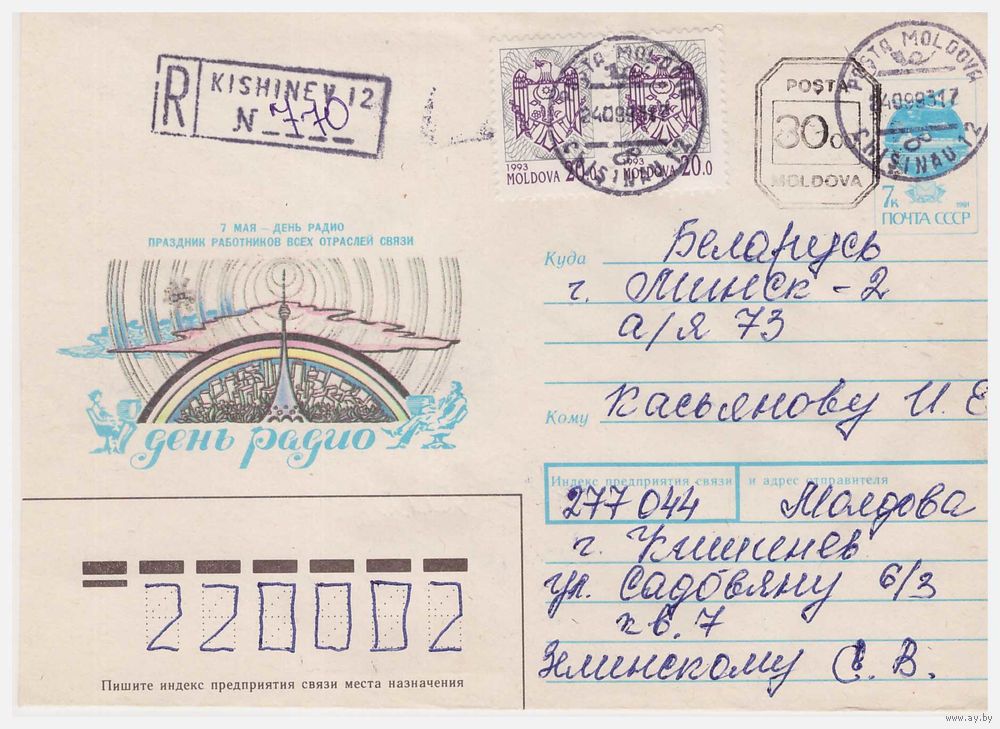 R KISHINEV 12
N 770
POSTA MOLDOVA
24099317
CHISINAU 12
1993
MOLDOVA 20.0
1993
20.0
POȘTA
30
MOLDOVA
POSTA MOLDOVA
24099317
CHISINAU 12
7к 1991
ПОЧТА СССР
7 МАЯ – ДЕНЬ РАДИО
ПРАЗДНИК РАБОТНИКОВ ВСЕХ ОТРАСЛЕЙ СВЯЗИ
день радио
Куда Беларусь
г. Минск - 2
а/я 73
Кому Касьянову И. Е
Индекс предприятия связи и адрес отправителя
277044 Молдова
г. Кишинев
ул. Садовяну 6/3
кв. 7
Землинскому С. В.
220002
Пишите индекс предприятия связи места назначения
www.ay.by